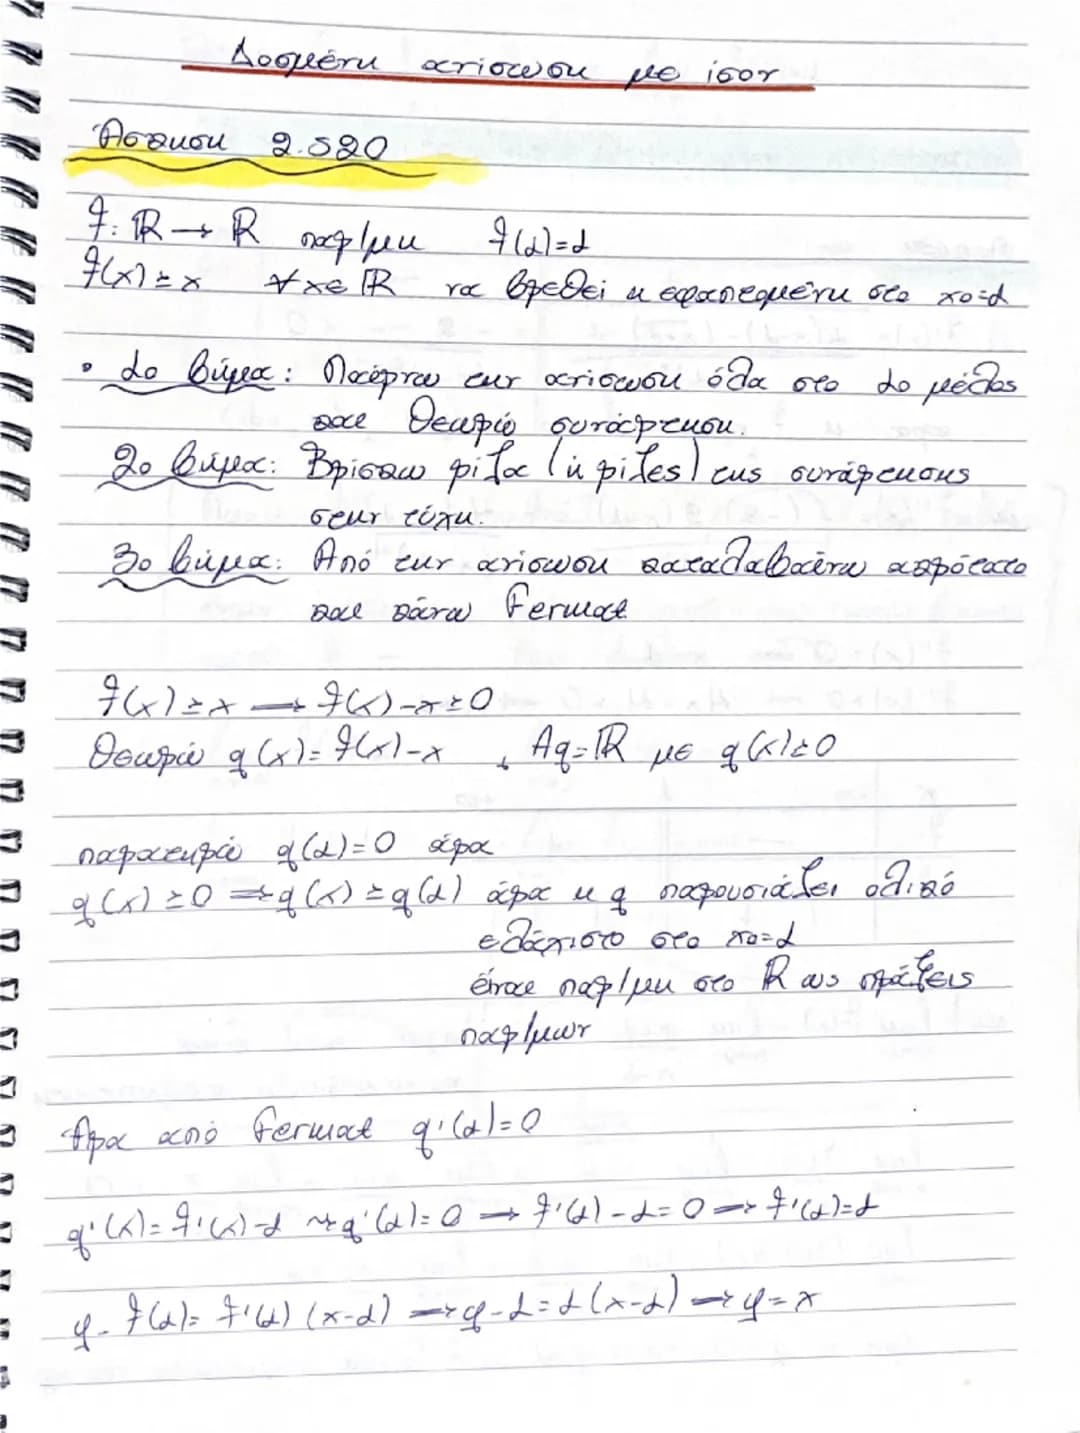 Δοσμένη ανίσωση με ίσον
Άσκηση 2.520
f: ℝ → ℝ παρ/μη f(1)=1
f(x) ≥ x ∀x∈ℝ να βρεθεί η εφαπτομένη στο x₀=1
• 1ο βήμα: Παίρνω την ανίσωση όλα στο 1ο μέλος
και θεωρώ συνάρτηση.
2ο βήμα: Βρίσκω ρίζα (ή ρίζες) της συνάρτησης
στην τύχη.
3ο βήμα: Από την ανίσωση καταλαβαίνω ακρότατο
και κάνω Fermat
f(x) ≥ x → f(x) - x ≥ 0
Θεωρώ g(x) = f(x) - x , Ag = ℝ με g(x) ≥ 0
παρατηρώ g(1)=0 άρα
g(x) ≥ 0 ⇒ g(x) ≥ g(1) άρα η g παρουσιάζει ολικό
ελάχιστο στο x₀=1
είναι παρ/μη στο ℝ ως πράξεις
παρ/μων
Άρα από Fermat g'(1)=0
g'(x) = f'(x) - 1 ⇝ g'(1) = 0 → f'(1) - 1 = 0 → f'(1)=1
y - f(1) = f'(1) (x-1) → y - 1 = 1(x-1) → y = x